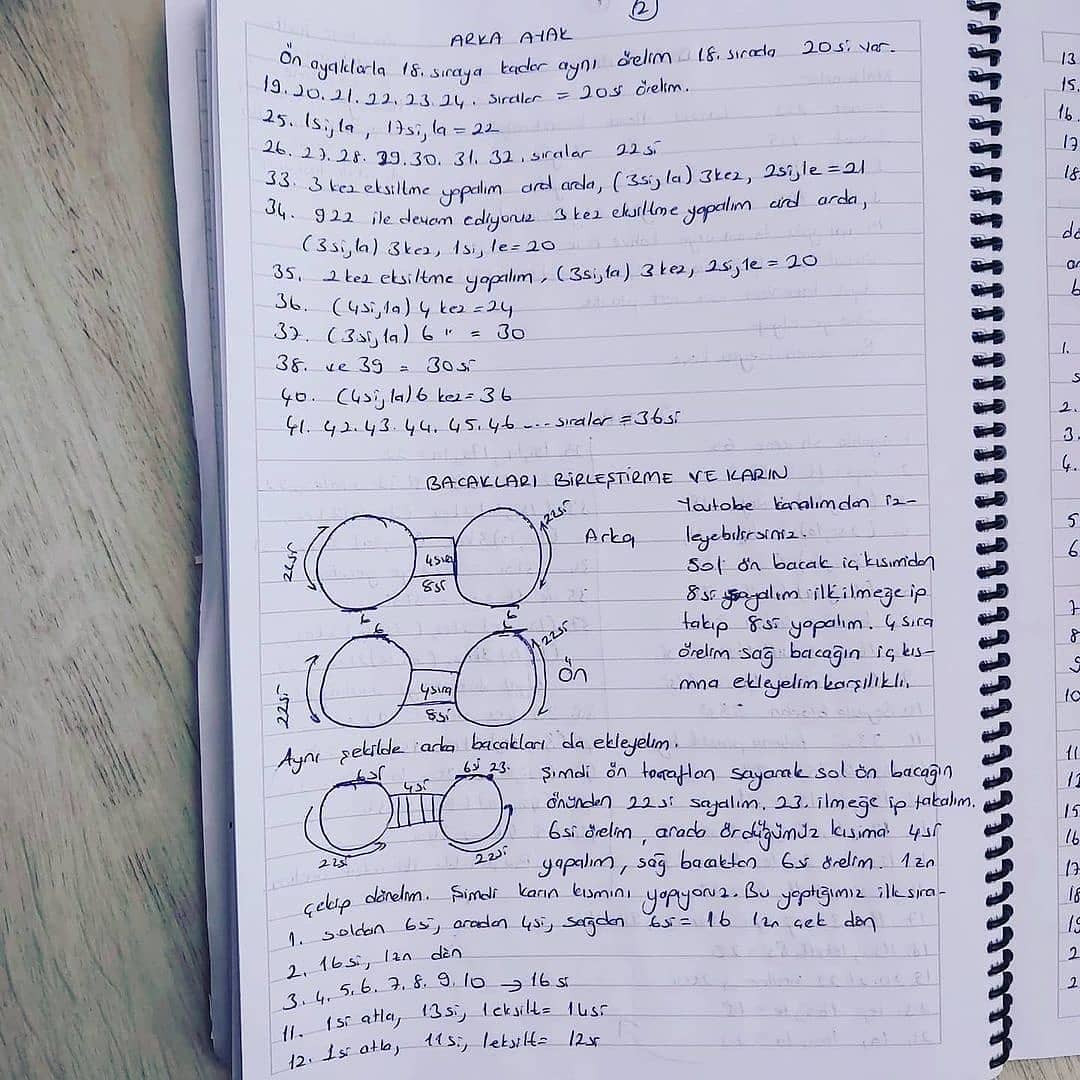 2
ARKA AYAK
Ön ayaklarla 18. sıraya kadar aynı örelim 18. sırada 20si var.
19. 20. 21. 22. 23. 24. sıralar = 20si örelim.
25. 1si, 1a, 17si, 1a = 22
26. 27. 28. 29. 30. 31. 32. sıralar 22si
33. 3 kez eksiltme yapalım ard arda, (3si, 1a) 3kez, 2si, 1e = 21
34. 922 ile devam ediyoruz 3 kez eksiltme yapalım ard arda,
(3si, 1a) 3kez, 1si, 1e = 20
35. 2 kez eksiltme yapalım, (3si, 1a) 3 kez, 2si, 1e = 20
36. (4si, 1a) 4 kez = 24
37. (3si, 1a) 6 " = 30
38. ve 39 = 30si
40. (4si, 1a) 6 kez = 36
41. 42. 43. 44. 45. 46 --- sıralar = 36si
BACAKLARI BİRLEŞTİRME VE KARIN
22si
4sıra
8si
22si
Arka
6
6
6
6
22si
4sıra
8si
22si
Ön
Youtobe kanalımdan iz-
leyebilirsiniz.
Sol ön bacak iç kısımdan
8si sayalım ilk ilmeğe ip
takıp 8si yapalım. 4 sıra
örelim sağ bacağın iç kıs-
mına ekleyelim karşılıklı.
Aynı şekilde arka bacakları da ekleyelim.
6si
4si
6si 23.
22si
22si
Şimdi ön taraftan sayarak sol ön bacağın
önünden 22si sayalım. 23. ilmeğe ip takalım.
6si örelim, arada ördüğümüz kısıma 4si
yapalım, sağ bacaktan 6si örelim. 1zn
çekip dönelim. Şimdi karın kısmını yapıyoruz. Bu yaptığımız ilk sıra-
1. soldan 6si, aradan 4si, sağdan 6si = 16 1zn çek dön
2. 16si, 1zn dön
3. 4. 5. 6. 7. 8. 9. 10 → 16 si
11. 1si atla, 13si, 1eksilt = 14si
12. 1si atla, 11si, 1eksilt = 12si
13
15.
16.
17
18.
1.
2.
3.
4.
5
6.
7
8
9
10
11
12
15
16
17
18
19
2
2